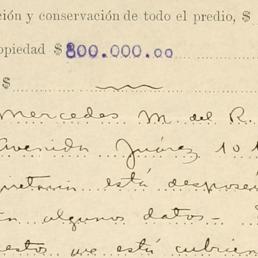 ción y conservación de todo el predio, $
opiedad $ 800.000.00
$
Mercedes M. del R.
Avenida Juárez 101
pietaria está desposeí
en algunos datos -
estos que está cubrien